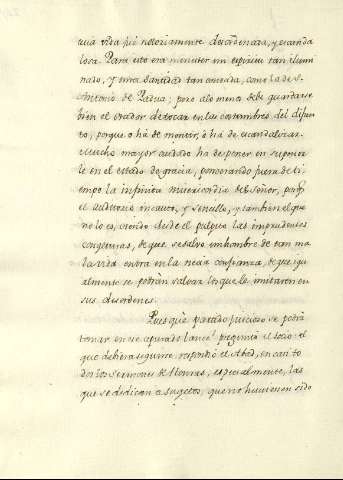 cuia vida fué notoriamente desordenada, y escanda
losa. Para esto era menester un espiritu tan ilumi
nado, y una santidad tan elevada, como la de S.
Antonio de Padua; pero alo menos debe guardarse
bien el orador de tocar en las costumbres del difun
to, porque o há de mentir, ó há de escandalizar.
Mucho mayor cuidado ha de poner en suponer
le en el estado de gracia, ponderando fuera de ti
empo la infinita misericordia del Señor, porq.e
el auditorio incauto, y sencillo, y tambien el que
no lo es, oiendo desde el pulpito las imprudentes
congeturas, de que se salvó un hombre de tan ma
la vida entra en la necia confianza, de que igu
almente se podrán salvar los que le imitaron en
sus desordenes.
Pues què partido juicioso se podrá
tomar en ese apurado lance? preguntó el socio: el
que debiera seguirse, respondió el Abad, en casi to
dos los sermones de Honras, especialmente, las
que se dedican a sugetos, que no huviesen sido